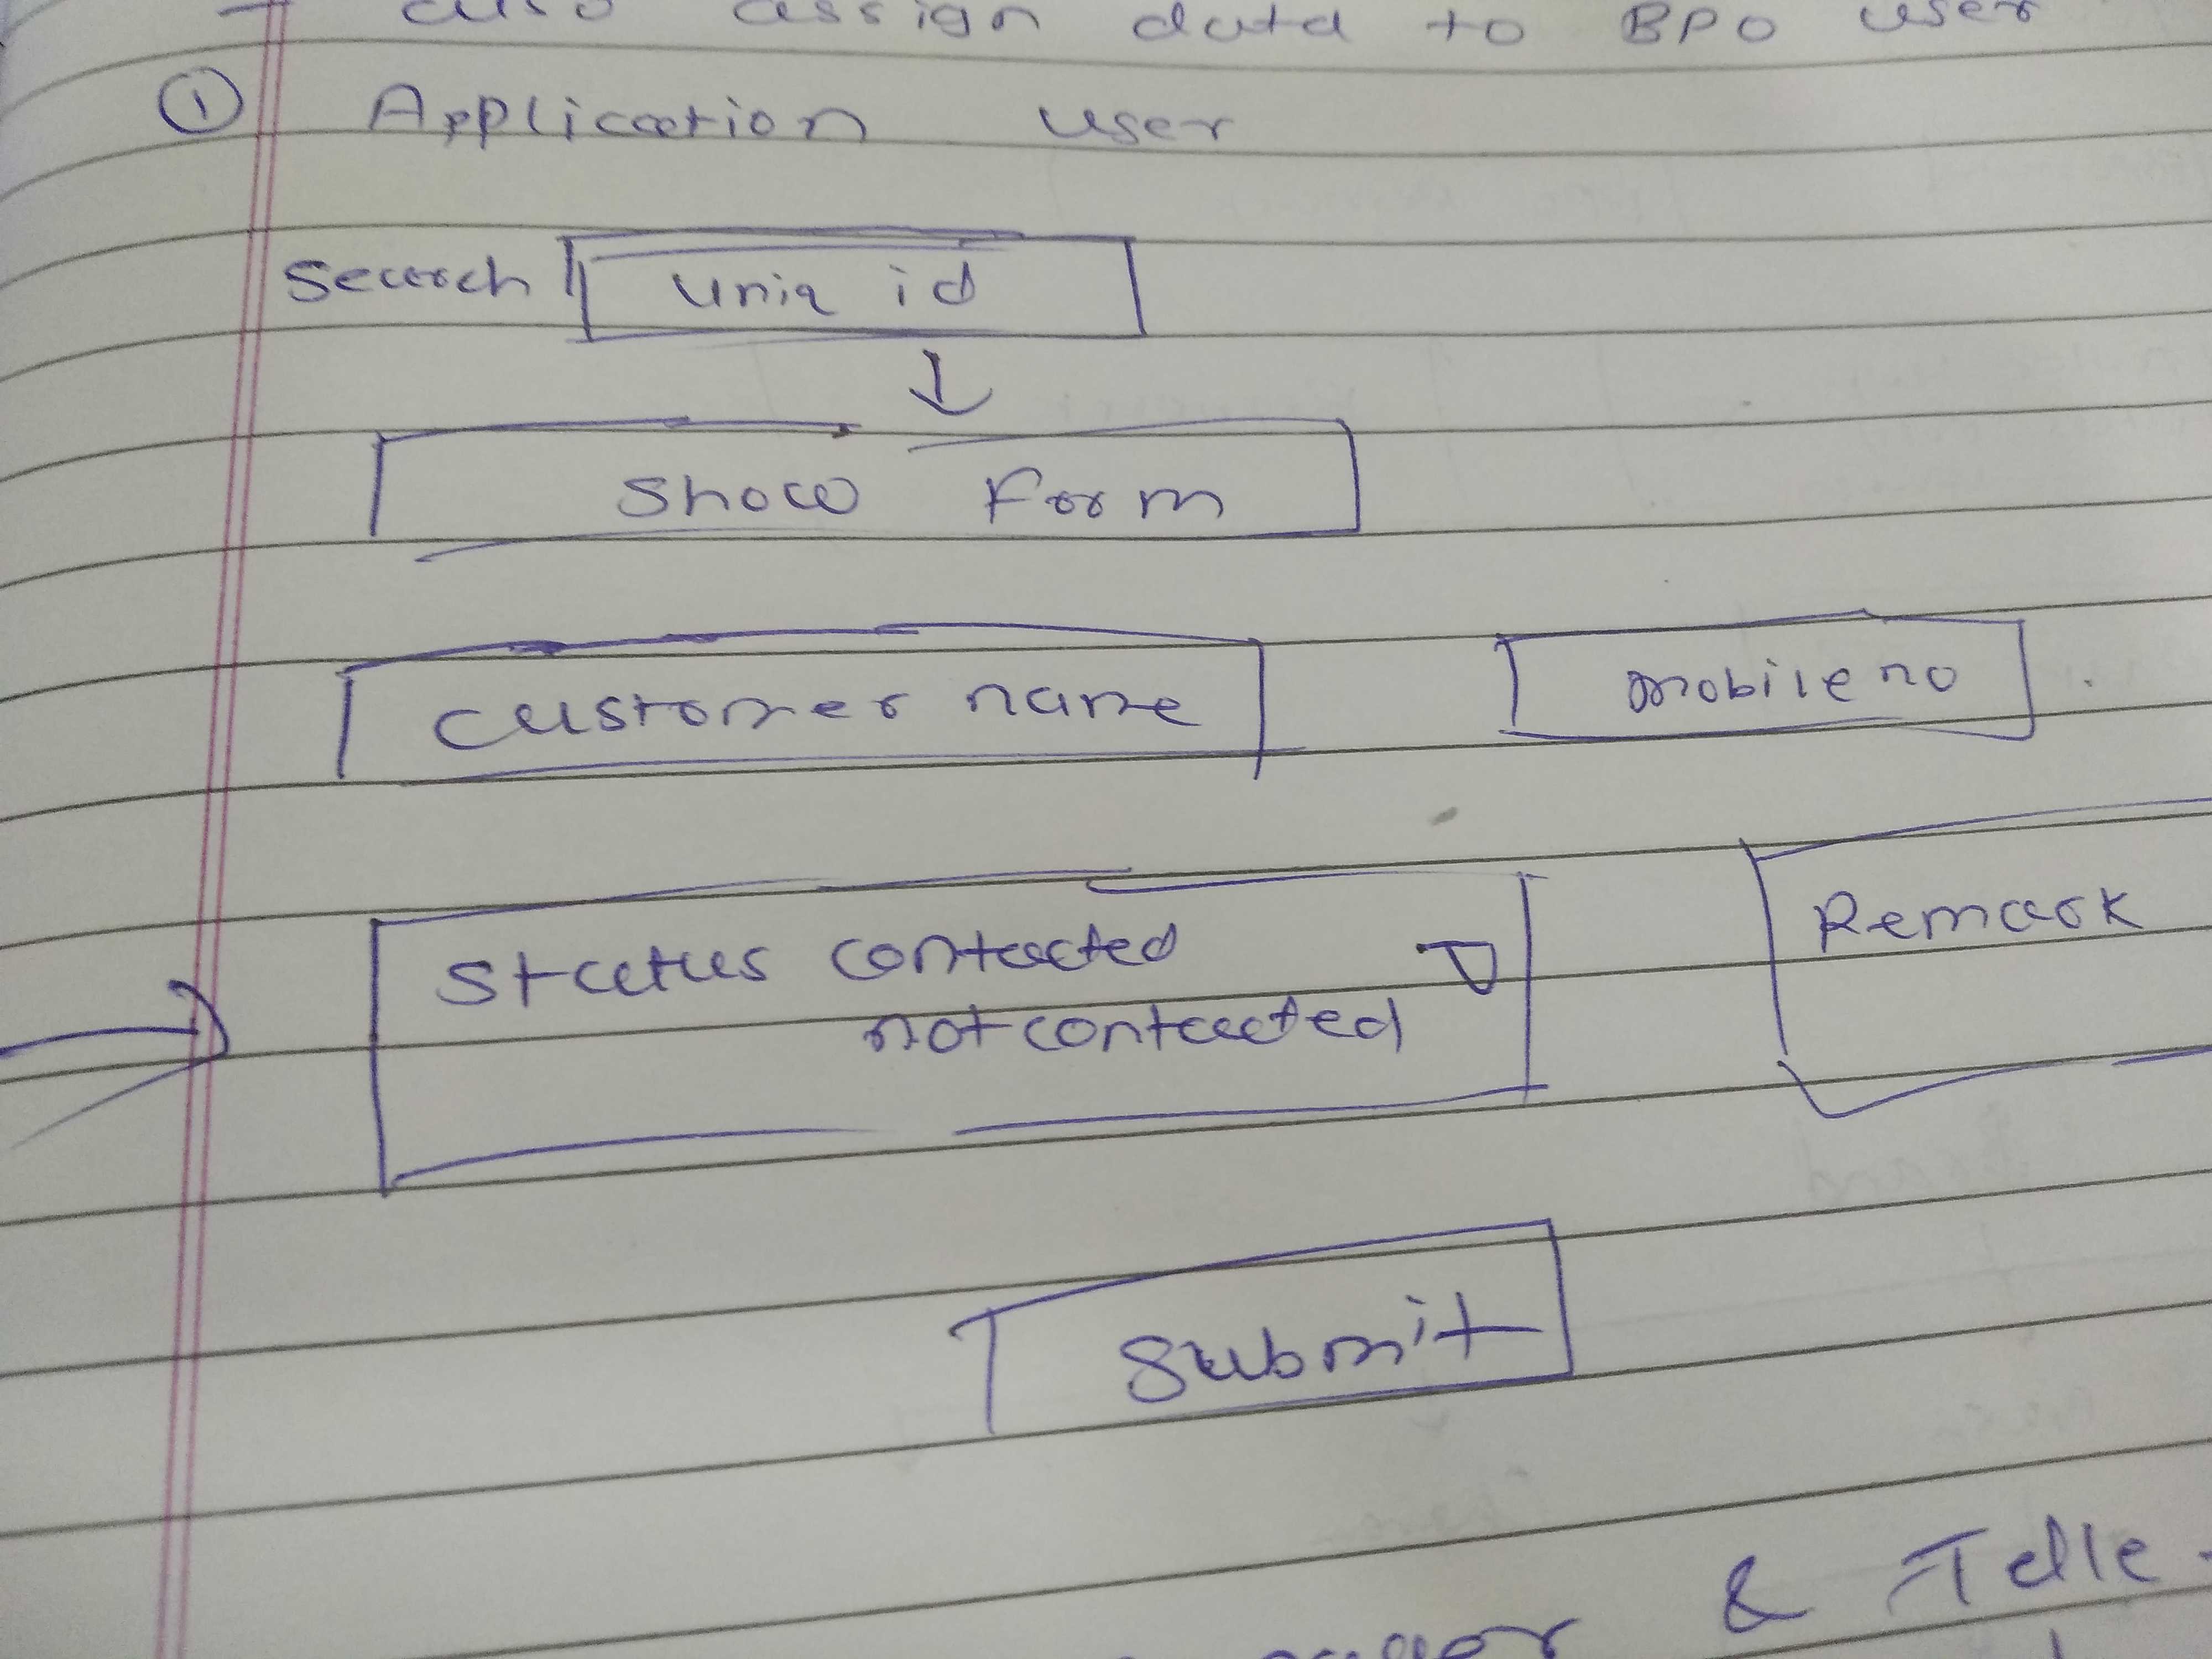 also assign data to BPO user
1 Application user
Search uniq id
↓
Show Form
customer name mobile no
Status contacted Remark
not contacted
Submit
& Telle